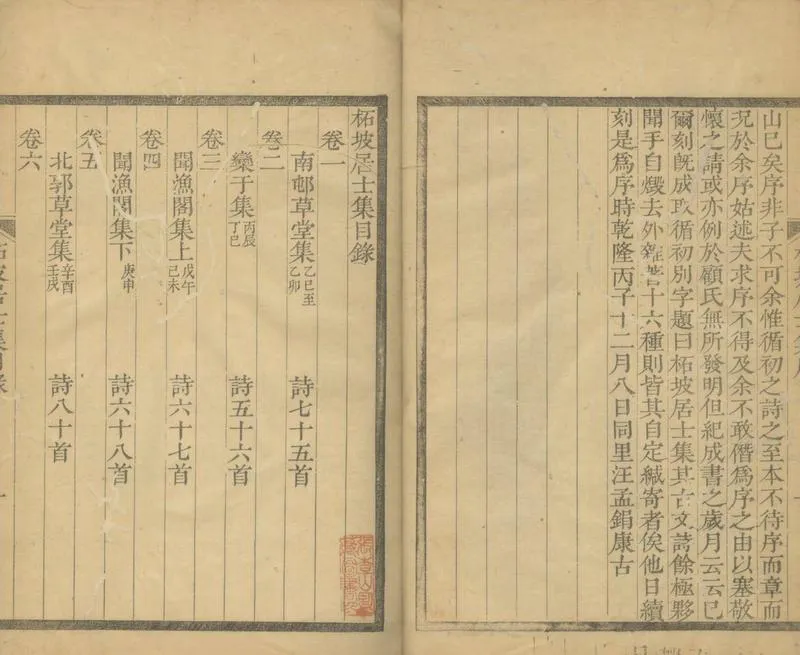 山已矣序非子不可余惟循初之詩之至本不待序而章而
況於余序姑述夫求序不得及余不敢僭為序之由以塞敬
懷之請或亦例於顧氏無所發明但紀成書之歲月云云已
爾刻既成取循初別字題曰柘坡居士集其古文詩餘極夥
聞手自燬去外雜著十六種則皆其自定緘寄者俟他日續
刻是為序時乾隆丙子十二月八日同里汪孟鋗康古
柘坡居士集目錄
卷一
南邨草堂集 乙巳至乙卯 詩七十五首
卷二
欒于集 丙辰丁巳 詩五十六首
卷三
聞漁閣集上 戊午己未 詩六十七首
卷四
聞漁閣集下 庚申 詩六十八首
卷五
北郭草堂集 辛酉壬戌 詩八十首
卷六
柘坡居士集目錄
一